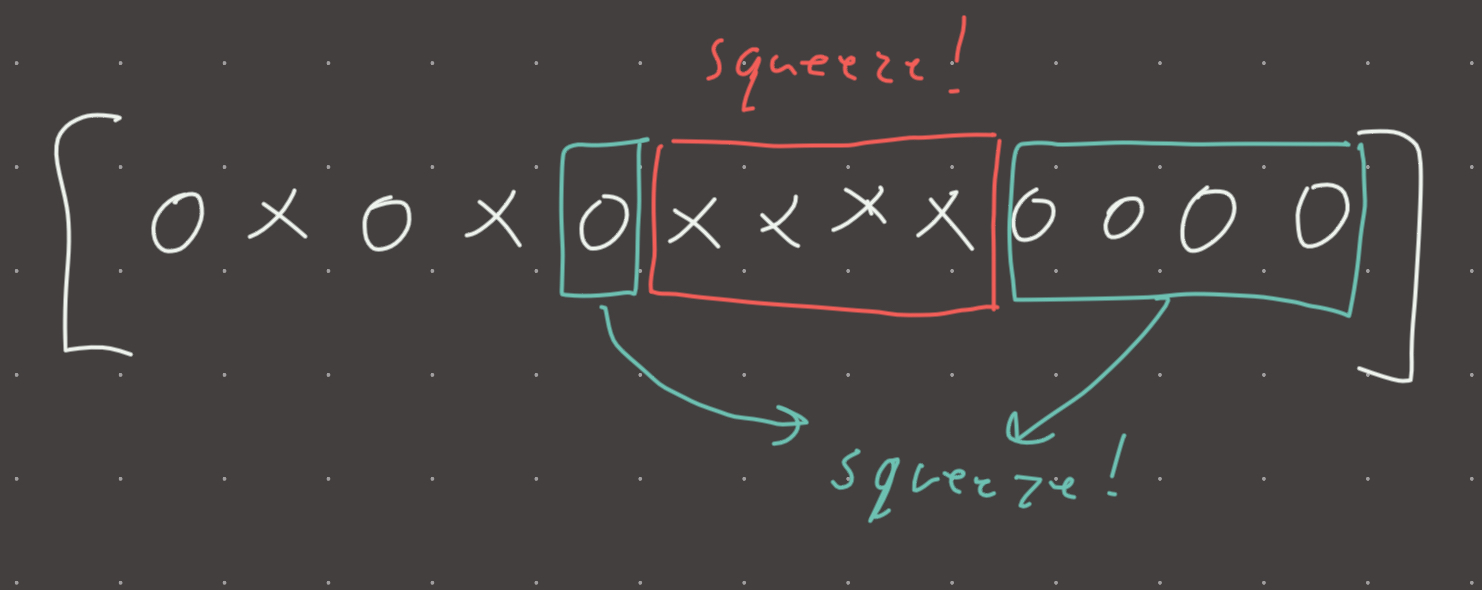 squeeze!
[ O X O X O X X X X O O O O ]
squeeze!